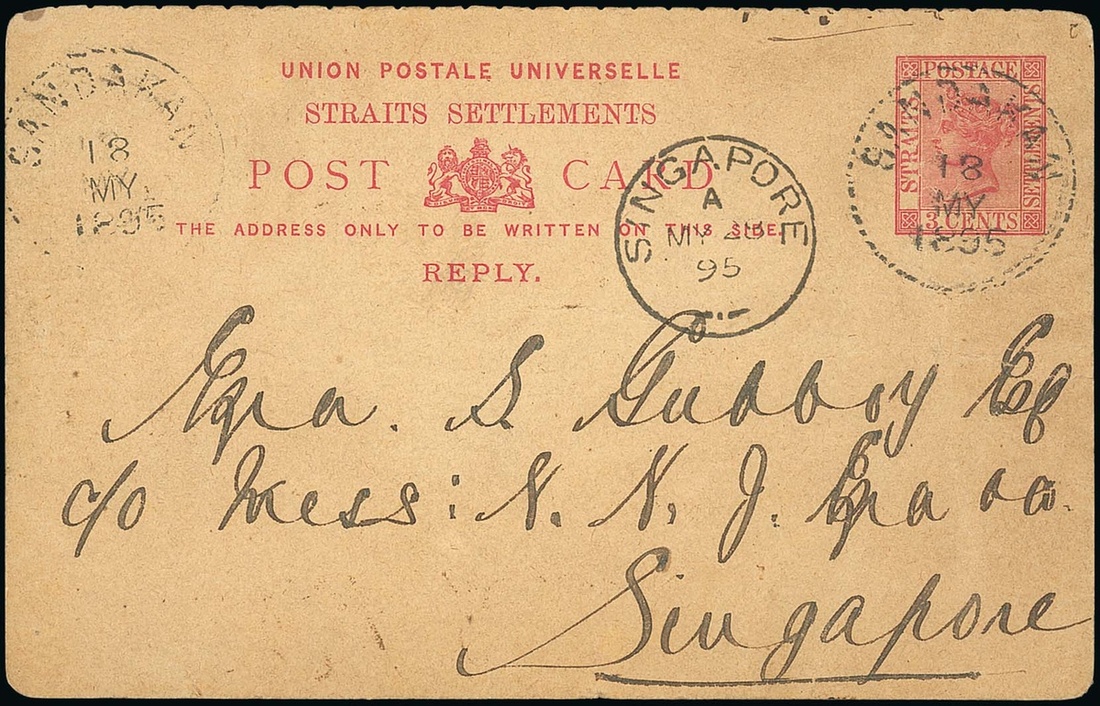 UNION POSTALE UNIVERSELLE
STRAITS SETTLEMENTS
POST CARD
THE ADDRESS ONLY TO BE WRITTEN ON THIS SIDE.
REPLY.
SANDAKAN
18
MY
1895
SINGAPORE
A
MY
95
POSTAGE
STRAITS
SETTLEMENTS
3 CENTS
SANDAKAN
18
MY
1895
Ezra. S. Gubboy Esq
c/o Mess: N. N. J. Ezra &co.
Singapore